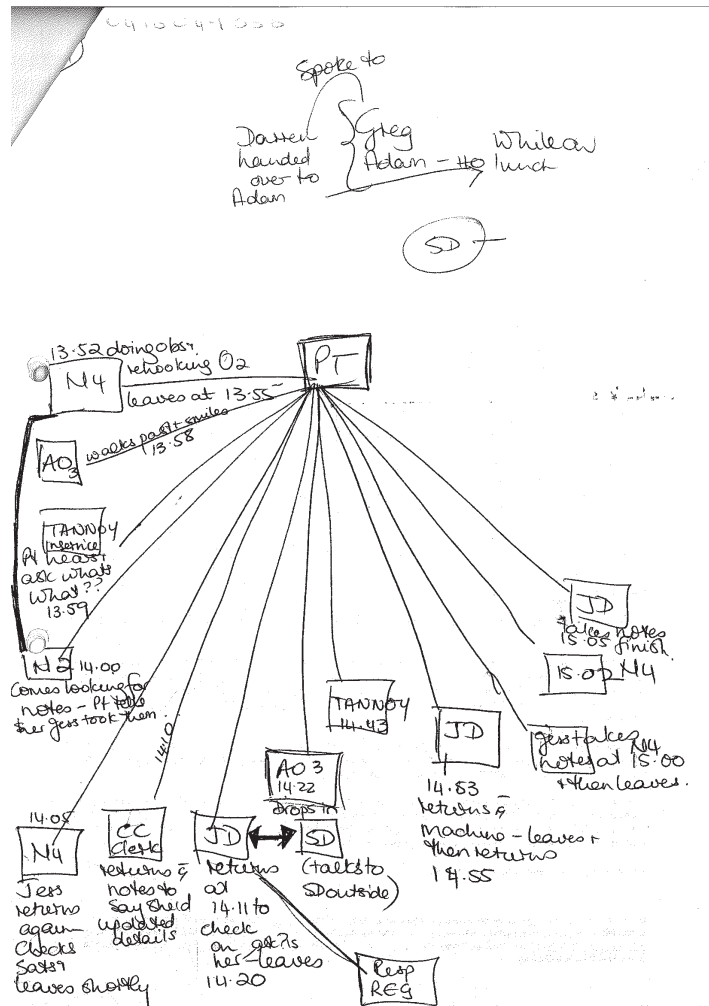 041004-1000
Spoke to
Darren
handed
over to
Adam
Greg
Adam - HO
While on
lunch
SD
PT
13.52 doing obs +
rehooking O2
leaves at 13.55
N4
walks past + smiles
13.58
AO3
TANNOY
inservice
Pt hears +
ask whats
What??
13.59
N2 14.00
Comes looking for
notes - Pt tells
her Jess took them
14.05
N4
Jess
returns
again
Checks
Sats +
leaves shortly
14.10
CC
Clerk
returns c̄
notes to
say she'd
updated
details
JD
returns
at
14.11 to
check
on
her - leaves
14.20
AO3
14.22
drops in
SD
(talks to
SD outside)
Resp
REG
TANNOY
14.43
JD
14.53
returns c̄
machine - leaves +
then returns
14.55
Jess takes N4
notes at 15.00
+ then leaves.
15.02 N4
JD
takes notes
15.05 finish.